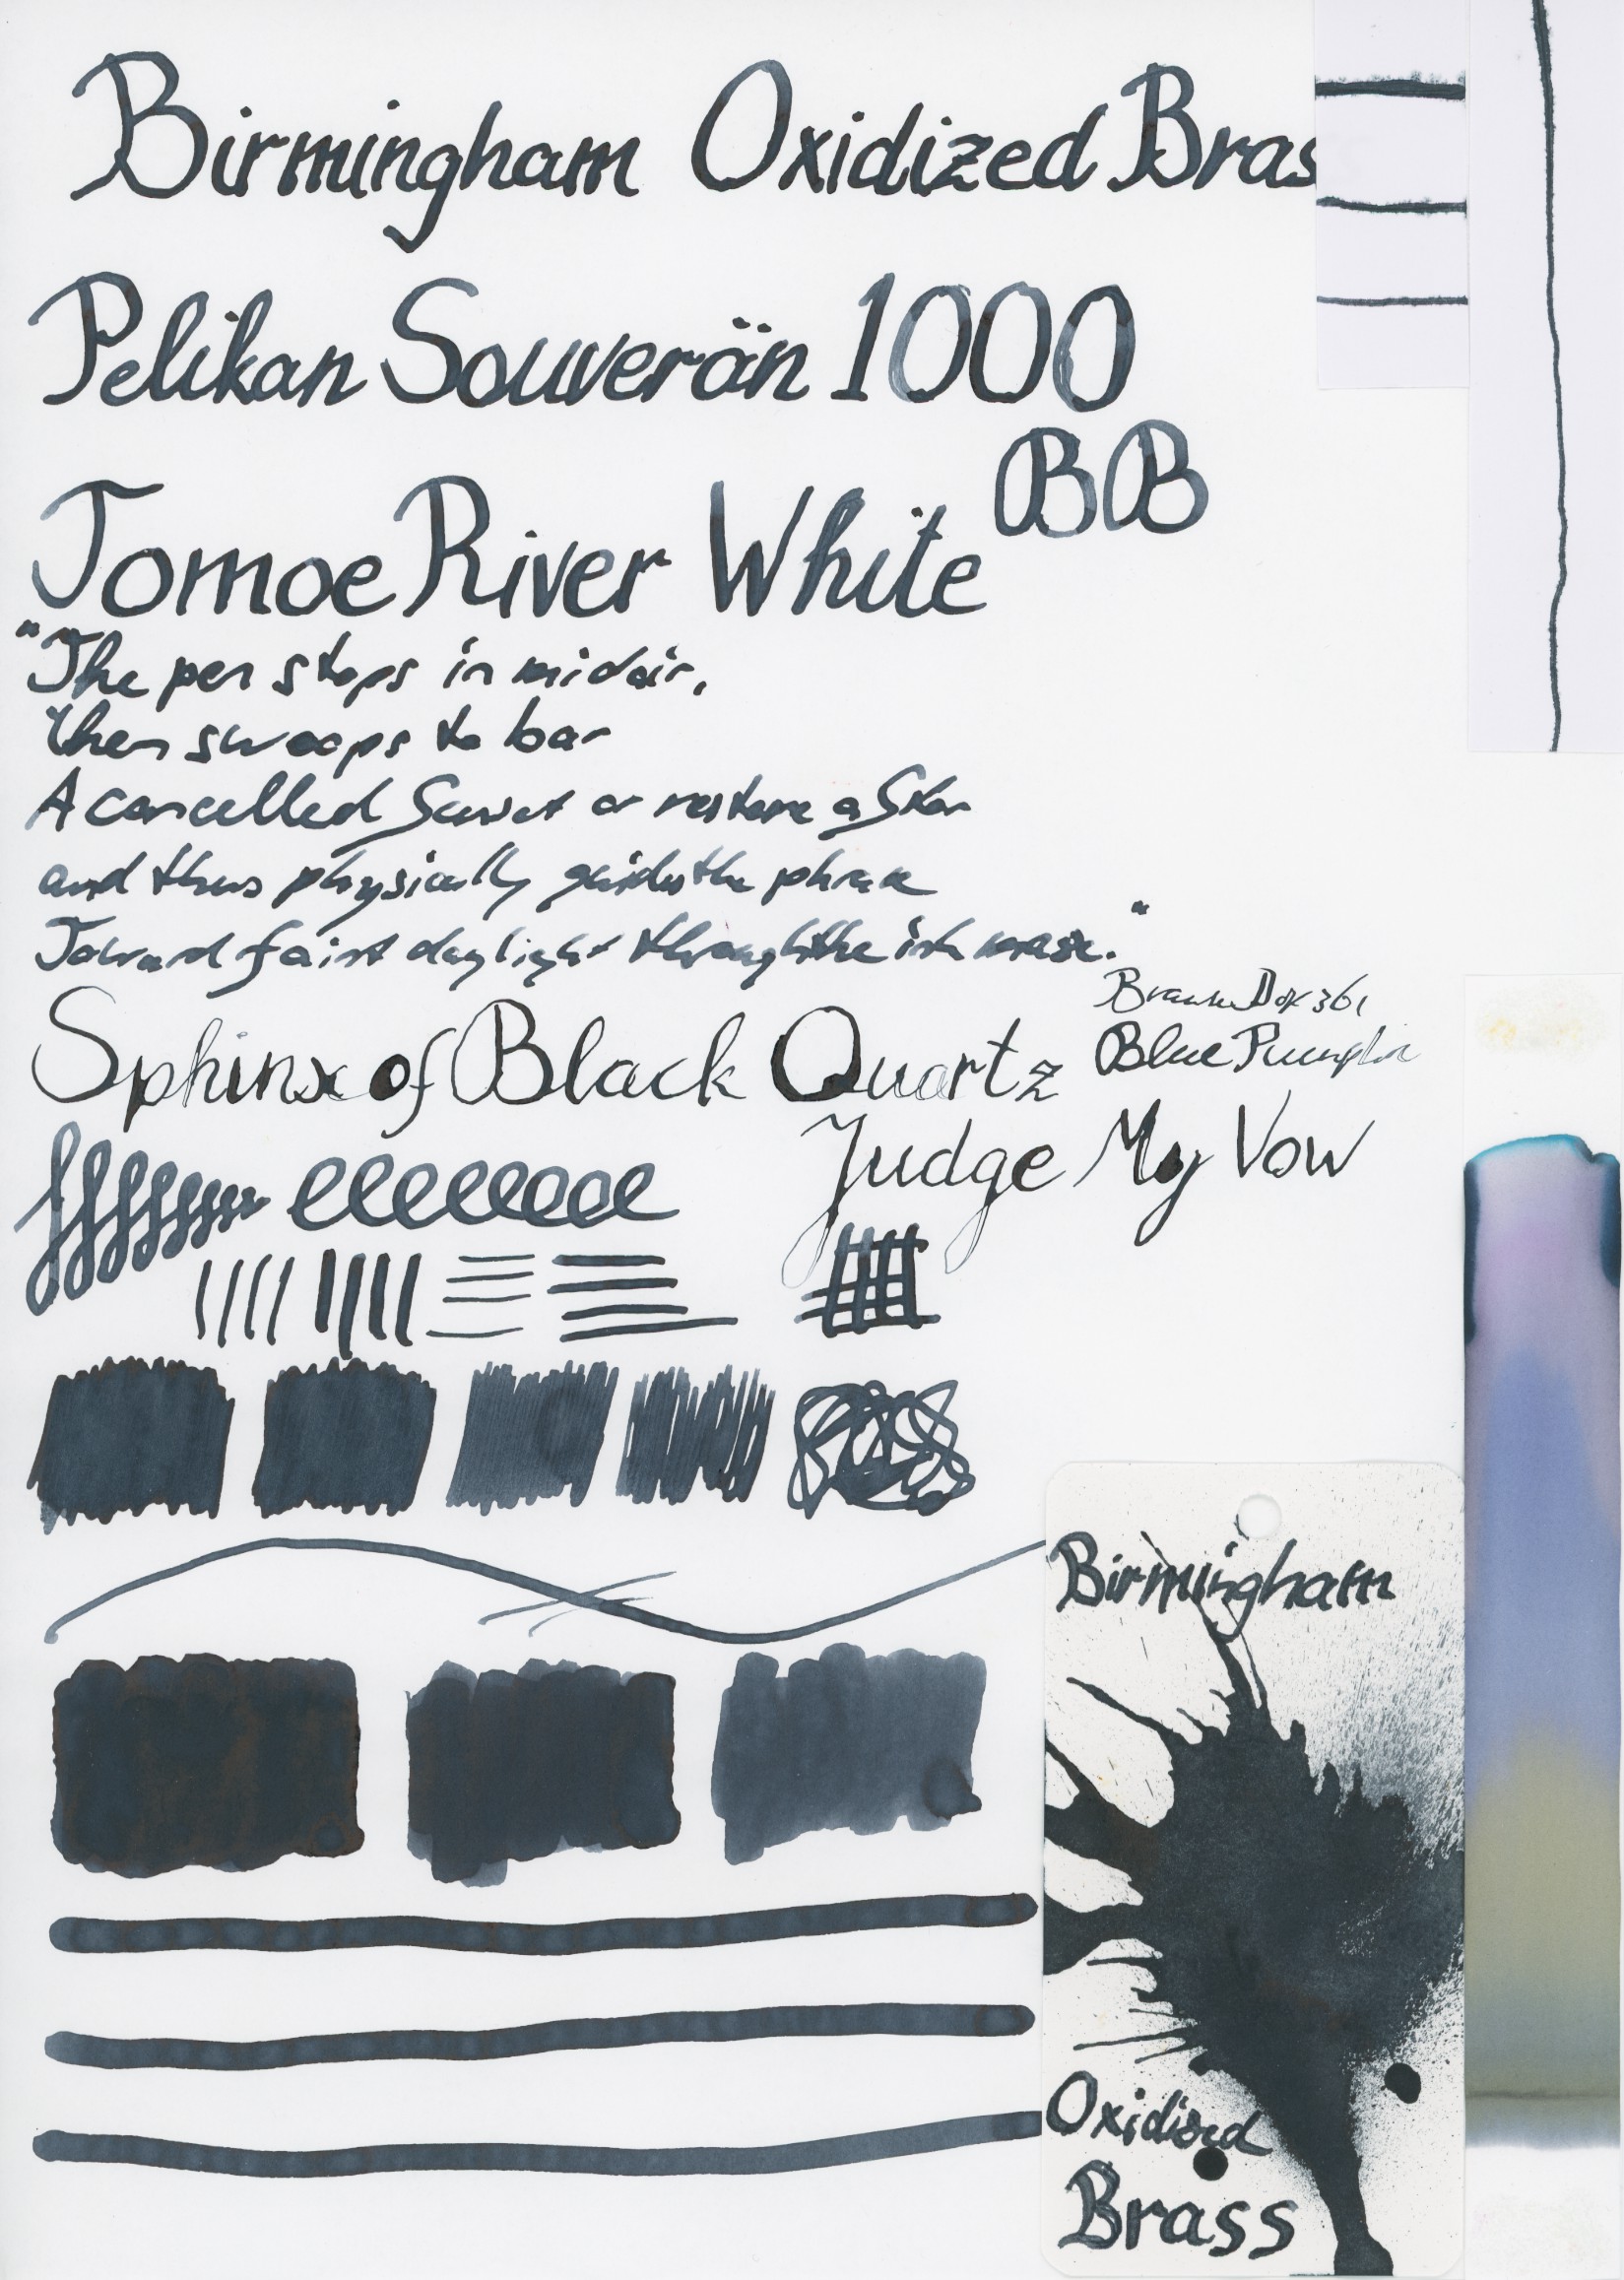 Birmingham Oxidized Bras
Pelikan Souverän 1000
BB
Tomoe River White
"The pen stops in midair,
then swoops to bar
A cancelled Sunset or restore a Star
and thus physically guides the phrase
Toward faint daylight through the ink maze."
Brause 361
Blue Pumpkin
Sphinx of Black Quartz
Judge My Vow
Birmingham
Oxidized
Brass